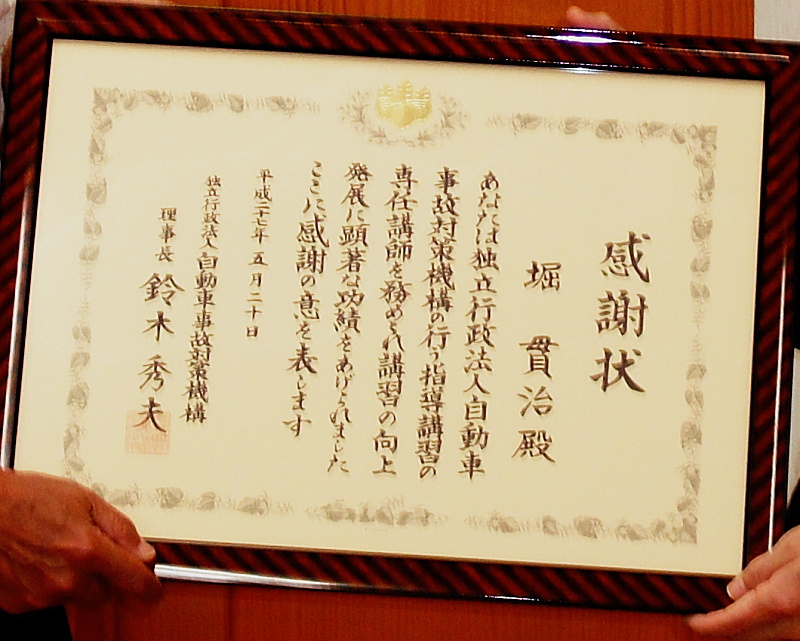 感謝状
堀 貫治殿
あなたは独立行政法人自動車
事故対策機構の行う指導講習の
専任講師を務められ講習の向上
発展に顕著な功績をあげられました
ここに感謝の意を表します
平成二十七年五月二十日
独立行政法人自動車事故対策機構
理事長 鈴木秀夫